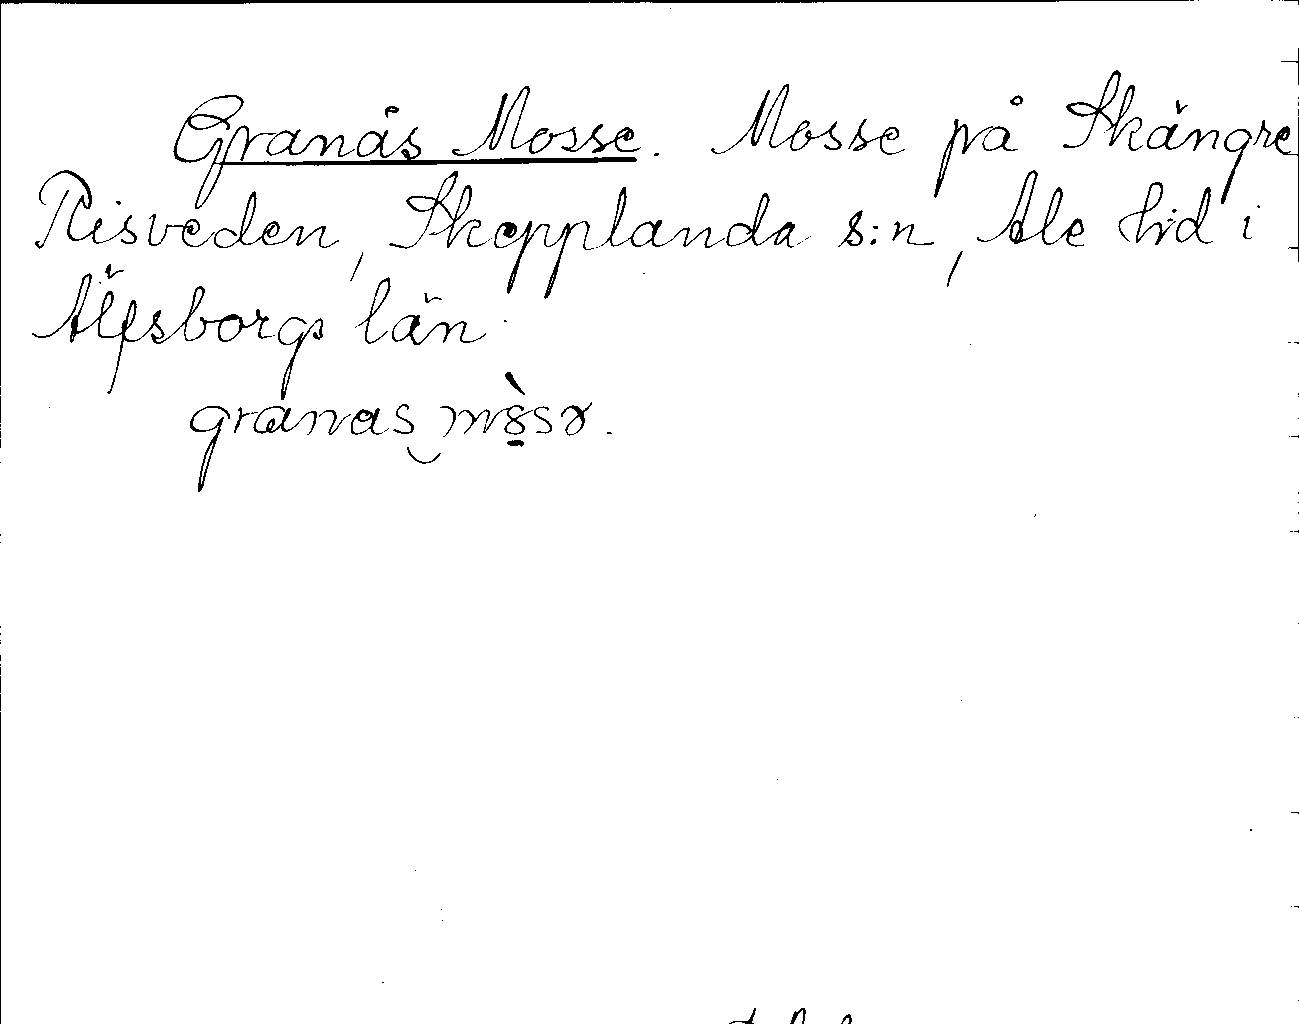 Granås Mosse. Mosse på Skängre
Risveden, Skepplanda s:n, Ale hd i
Älfsborgs län.
granas